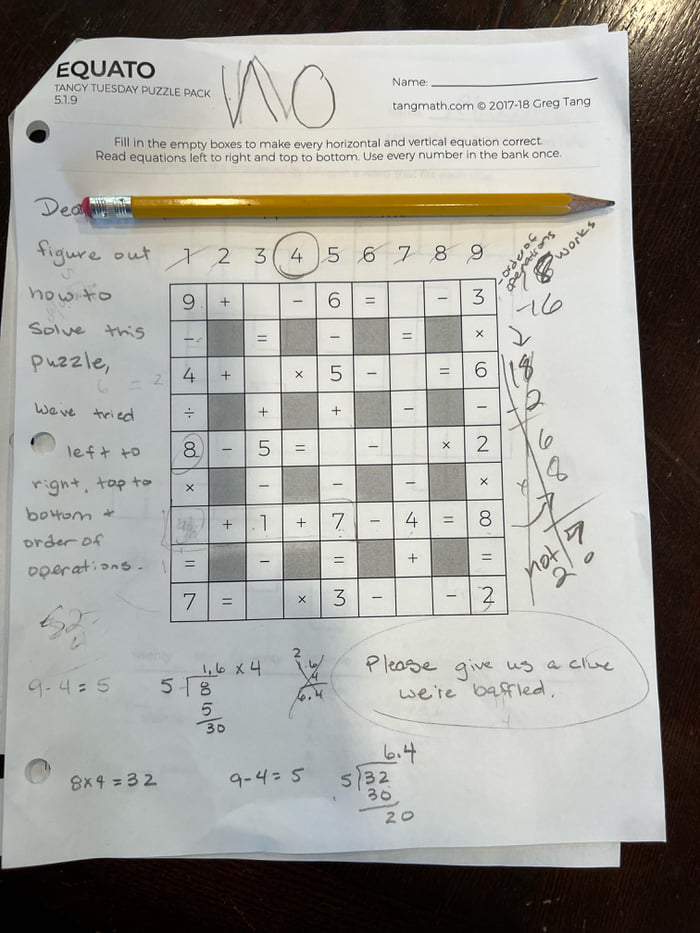 EQUATO
TANGY TUESDAY PUZZLE PACK
5.1.9
NO
Name:
tangmath.com © 2017-18 Greg Tang
Fill in the empty boxes to make every horizontal and vertical equation correct.
Read equations left to right and top to bottom. Use every number in the bank once.
1 2 3 4 5 6 7 8 9
figure out
how to
Solve this
puzzle,
We've tried
left to
right, top to
bottom +
order of
operations.
9 + - 6 = - 3
- = - = ×
4 + × 5 - = 6
÷ + + - -
8 - 5 = - × 2
× - - - ×
+ 1 + 7 - 4 = 8
= - = + =
7 = × 3 - - 2
-order of operations
works
18
-16
18
-2
6
8
not 2
9-4=5
1.6 × 4
5 8
5
30
2
1.6
4
6.4
Please give us a clue
we're baffled.
8×4=32
9-4=5
6.4
5 32
30
20